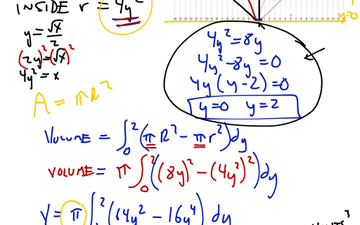 INSIDE r = 4y²
y = √x/2
(2y)² = (√x)²
4y² = x
A = πR²
y=0
4y² = 8y
4y² - 8y = 0
4y(y-2) = 0
y=0 y=2
VOLUME = ∫₀²(πR² - πr²)dy
VOLUME = π∫₀²((8y)² - (4y²)²)dy
V = π∫²(14y² - 16y⁴)dy